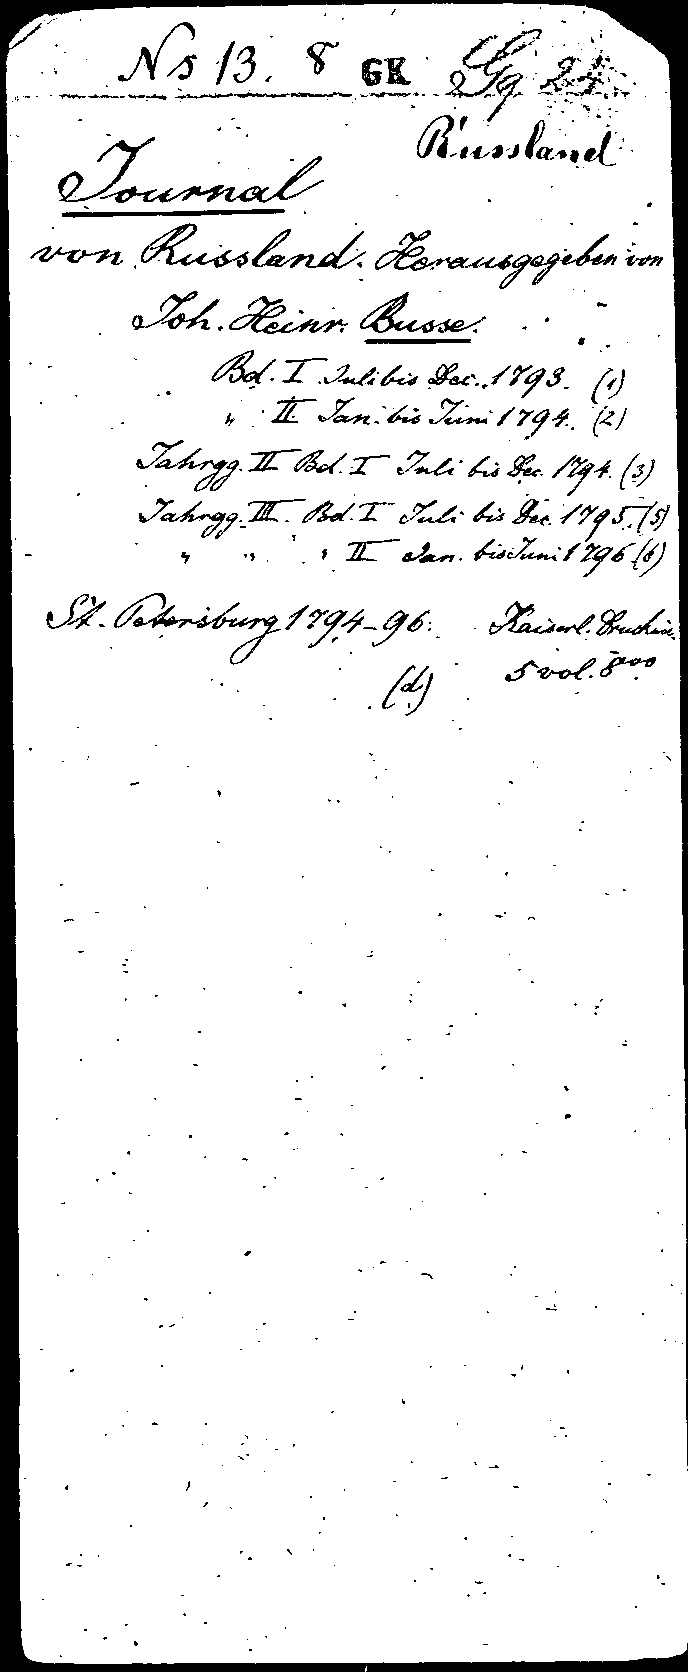 Ns 13. 8 GK Gq 24
Russland
Journal
von Russland. Herausgegeben von
Joh. Heinr. Busse.
Bd. I Juli bis Dec. 1793. (1)
„ II Jan. bis Juni 1794. (2)
Jahrgg. II Bd. I Juli bis Dec. 1794. (3)
Jahrgg. III. Bd. I Juli bis Dec. 1795. (5)
„ „ „ II Jan. bis Juni 1796 (6)
St. Petersburg 1794-96. Kaiserl.
5 vol. 8
(d)